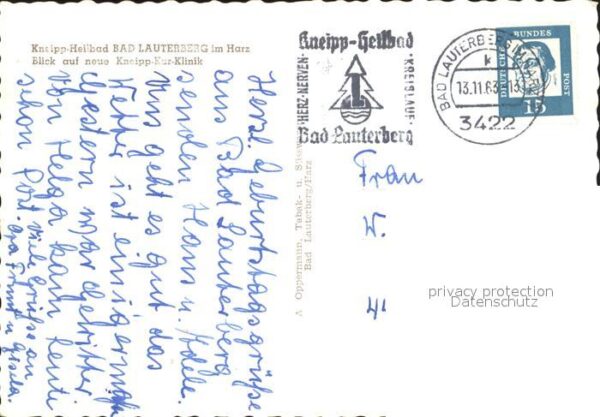 Kneipp-Heilbad BAD LAUTERBERG im Harz
Blick auf neue Kneipp-Kur-Klinik
Herzl. Geburtstagsgrüße
aus Bad Lauterberg
senden Hans u. Adele.
Uns geht es gut das
Wetter ist einigermaß
Gestern war Gewitter
Von Helga kam heute
schon Post. viele Grüße an
A Oppermann, Tabak- u.
Bad Lauterberg/Harz
Kneipp-Heilbad
HERZ-NERVEN-
KREISLAUF
Bad Lauterberg
BAD LAUTERBERG IM HARZ
k
13.11.63
3422
DEUTSCHE BUNDESPOST
15
Frau
W.
privacy protection
Datenschutz